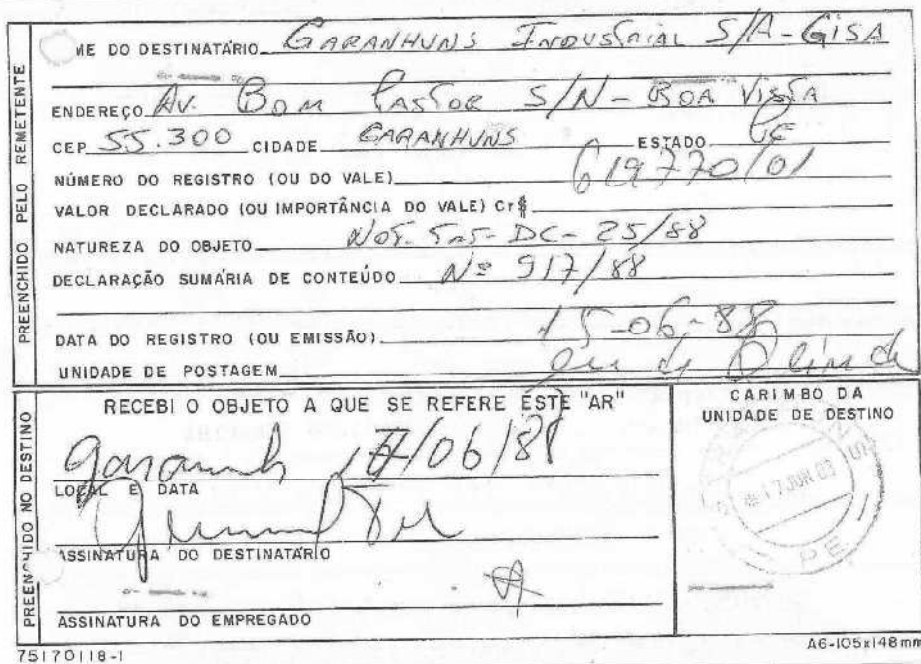 ME DO DESTINATÁRIO GARANHUNS INDUSTRIAL S/A - GISA
ENDEREÇO AV. BOM PASTOR S/N - BOA VISTA
CEP 55.300 CIDADE GARANHUNS ESTADO PE
NÚMERO DO REGISTRO (OU DO VALE) 619770/01
VALOR DECLARADO (OU IMPORTÂNCIA DO VALE) Cr$
NATUREZA DO OBJETO NOT. DC- 25/88
DECLARAÇÃO SUMÁRIA DE CONTEÚDO Nº 917/88
DATA DO REGISTRO (OU EMISSÃO) 15-06-88
UNIDADE DE POSTAGEM
PREENCHIDO PELO REMETENTE
RECEBI O OBJETO A QUE SE REFERE ESTE "AR"
17/06/88
LOCAL E DATA
ASSINATURA DO DESTINATÁRIO
ASSINATURA DO EMPREGADO
PREENCHIDO NO DESTINO
CARIMBO DA
UNIDADE DE DESTINO
17 JUN
PE
75170118-1
A6-105x148mm